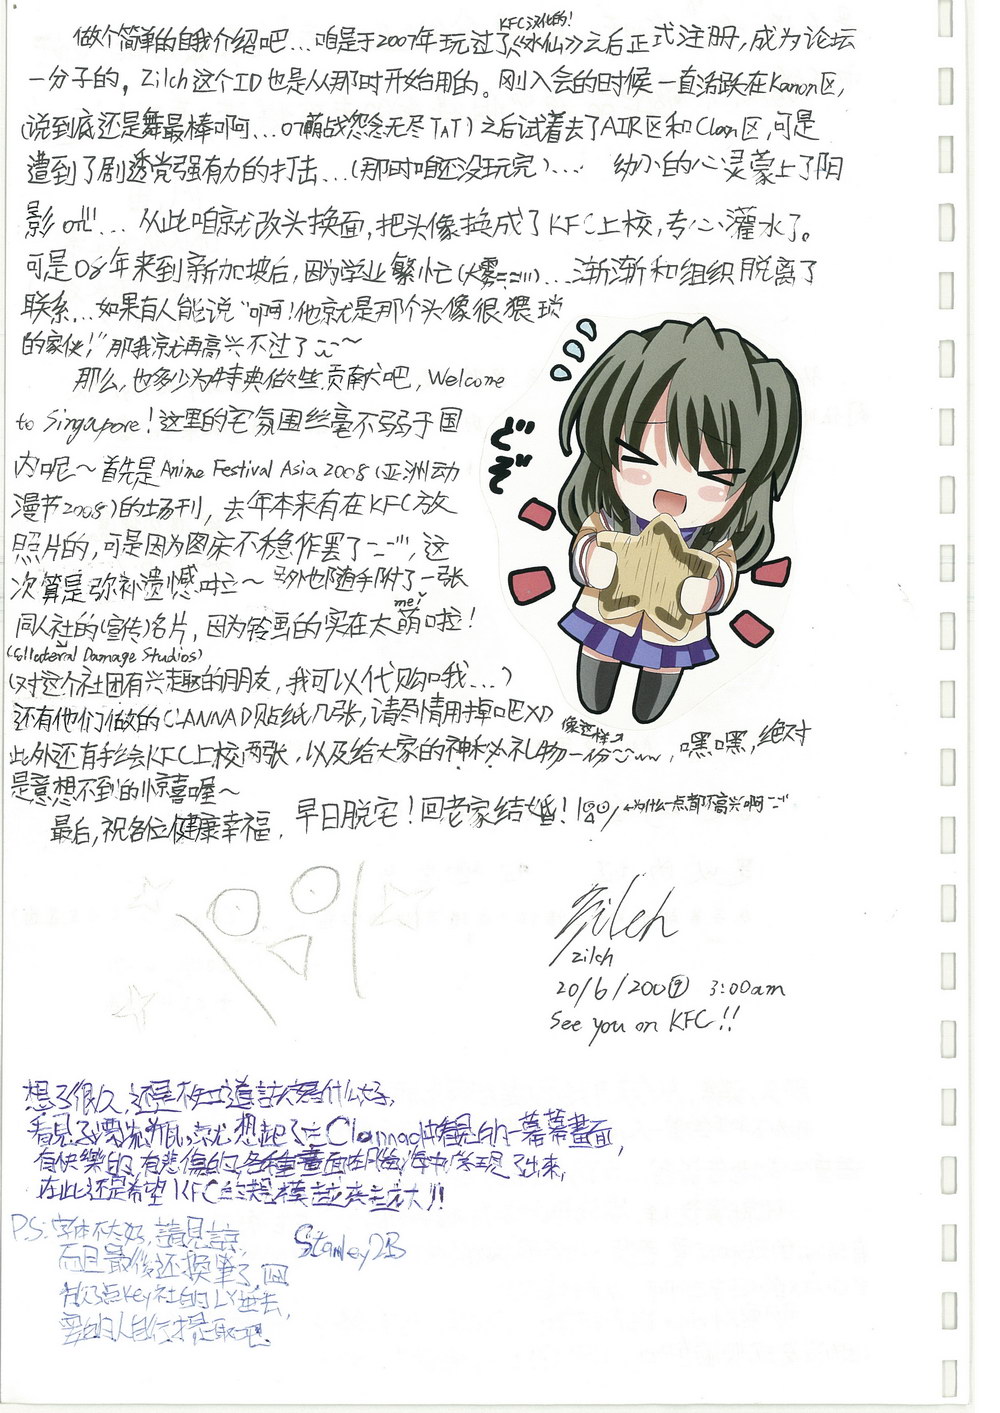 KFC汉化的!
做个简单的自我介绍吧...咱是于2007年玩过了《水仙》之后正式注册,成为论坛
一分子的,Zilch这个ID也是从那时开始用的。刚入会的时候一直活跃在Kanon区,
(说到底还是舞最棒啊...Orz萌战怨念无尽TAT)之后试着去了AIR区和Clan区,可是
遭到了剧透党强有力的打击...(那时咱还没玩完).... 幼小的心灵蒙上了阴
影... 从此咱就改头换面,把头像换成了KFC上校,专心灌水了。
可是08年来到新加坡后,因为学业繁忙(大雾)...渐渐和组织脱离了
联系...如果有人能说“啊!他就是那个头像很猥琐
的家伙!”那我就再高兴不过了~
那么,也多少为特典做些贡献吧,Welcome
to Singapore!这里的宅氛围丝毫不弱于国
内呢~首先是Anime Festival Asia 2008(亚洲动
漫节2008)的场刊,去年本来有在KFC放
照片的,可是因为图床不稳作罢了,这
次算是弥补遗憾啦~另外也随手附了一张
me!
同人社的(宣传)名片,因为铃画的实在太萌啦!
(Collateral Damage Studios)
(对这个社团有兴趣的朋友,我可以代购哦...)
还有他们做的CLANNAD贴纸几张,请尽情用掉吧XD
像这样↗
此外还有手绘KFC上校两张,以及给大家的神秘礼物一份,嘿嘿,绝对
是意想不到的惊喜喔~
最后,祝各位健康幸福,早日脱宅!回老家结婚! ←为什么一点都不高兴啊
どぞ
Zilch
Zilch
20/6/2009 3:00am
See you on KFC!!
想了很久,还是不知道該寫什么好,
看見了漂流瓶,就想起了在Clannad中看見的一幕幕畫面,
有快樂的,有悲傷的,各種畫面在腦海中浮現了出來,
在此还是希望KFC的規模越来越大!!
P.S:字体不太好,請見諒,
而且最後还換筆了,
Stanley2B
key社的LY进去,
要的人自行提取吧